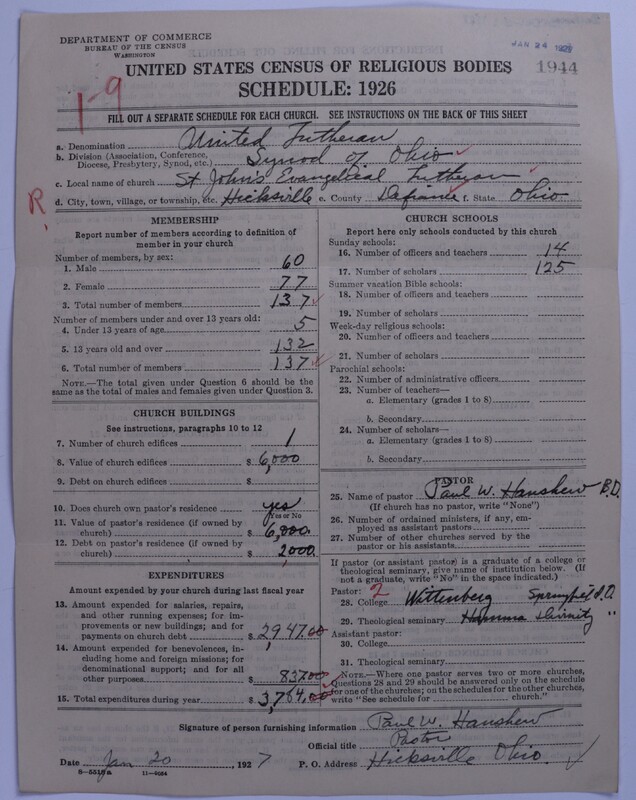 DEPARTMENT OF COMMERCE
BUREAU OF THE CENSUS
WASHINGTON
JAN 24 1927
1944
UNITED STATES CENSUS OF RELIGIOUS BODIES
SCHEDULE: 1926
1-9
FILL OUT A SEPARATE SCHEDULE FOR EACH CHURCH. SEE INSTRUCTIONS ON THE BACK OF THIS SHEET
a. Denomination United Lutheran
b. Division (Association, Conference, Diocese, Presbytery, Synod, etc.) Synod of Ohio
c. Local name of church St John's Evangelical Lutheran
R
d. City, town, village, or township, etc. Hicksville e. County Defiance f. State Ohio
MEMBERSHIP
Report number of members according to definition of
member in your church
Number of members, by sex:
1. Male 60
2. Female 77
3. Total number of members 137
Number of members under and over 13 years old:
4. Under 13 years of age 5
5. 13 years old and over 132
6. Total number of members 137
NOTE.—The total given under Question 6 should be
the same as the total of males and females given under Question 3.
CHURCH BUILDINGS
See instructions, paragraphs 10 to 12
7. Number of church edifices 1
8. Value of church edifices $ 6,000
9. Debt on church edifices $
10. Does church own pastor's residence? yes
Yes or No
11. Value of pastor's residence (if owned by
church) $ 6,000.
12. Debt on pastor's residence (if owned by
church) $ 2,000.
EXPENDITURES
Amount expended by your church during last fiscal year
13. Amount expended for salaries, repairs,
and other running expenses; for im-
provements or new buildings; and for
payments on church debt $ 2947.00
14. Amount expended for benevolences, in-
cluding home and foreign missions; for
denominational support; and for all
other purposes $ 837.00
15. Total expenditures during year $ 3,784.00
CHURCH SCHOOLS
Report here only schools conducted by this church
Sunday schools:
16. Number of officers and teachers 14
17. Number of scholars 125
Summer vacation Bible schools:
18. Number of officers and teachers
19. Number of scholars
Week-day religious schools:
20. Number of officers and teachers
21. Number of scholars
Parochial schools:
22. Number of administrative officers
23. Number of teachers—
a. Elementary (grades 1 to 8)
b. Secondary
24. Number of scholars—
a. Elementary (grades 1 to 8)
b. Secondary
PASTOR
25. Name of pastor Paul W. Hanshew B.D.
(If church has no pastor, write "None")
26. Number of ordained ministers, if any, em-
ployed as assistant pastors
27. Number of other churches served by the
pastor or his assistants
If pastor (or assistant pastor) is a graduate of a college or
theological seminary, give name of institution below. (If
not a graduate, write "No" in the space indicated.)
Pastor: 2
28. College Wittenberg Springfield, O.
29. Theological seminary Hamma Divinity "
Assistant pastor:
30. College
31. Theological seminary
NOTE.—Where one pastor serves two or more churches,
Questions 28 and 29 should be answered only on the schedule
for one of the churches; on the schedules for the other churches,
write "See schedule for church."
Signature of person furnishing information Paul W. Hanshew
Official title Pastor
Date Jan 20, 1927 P. O. Address Hicksville Ohio.
8-5518a 11-9084